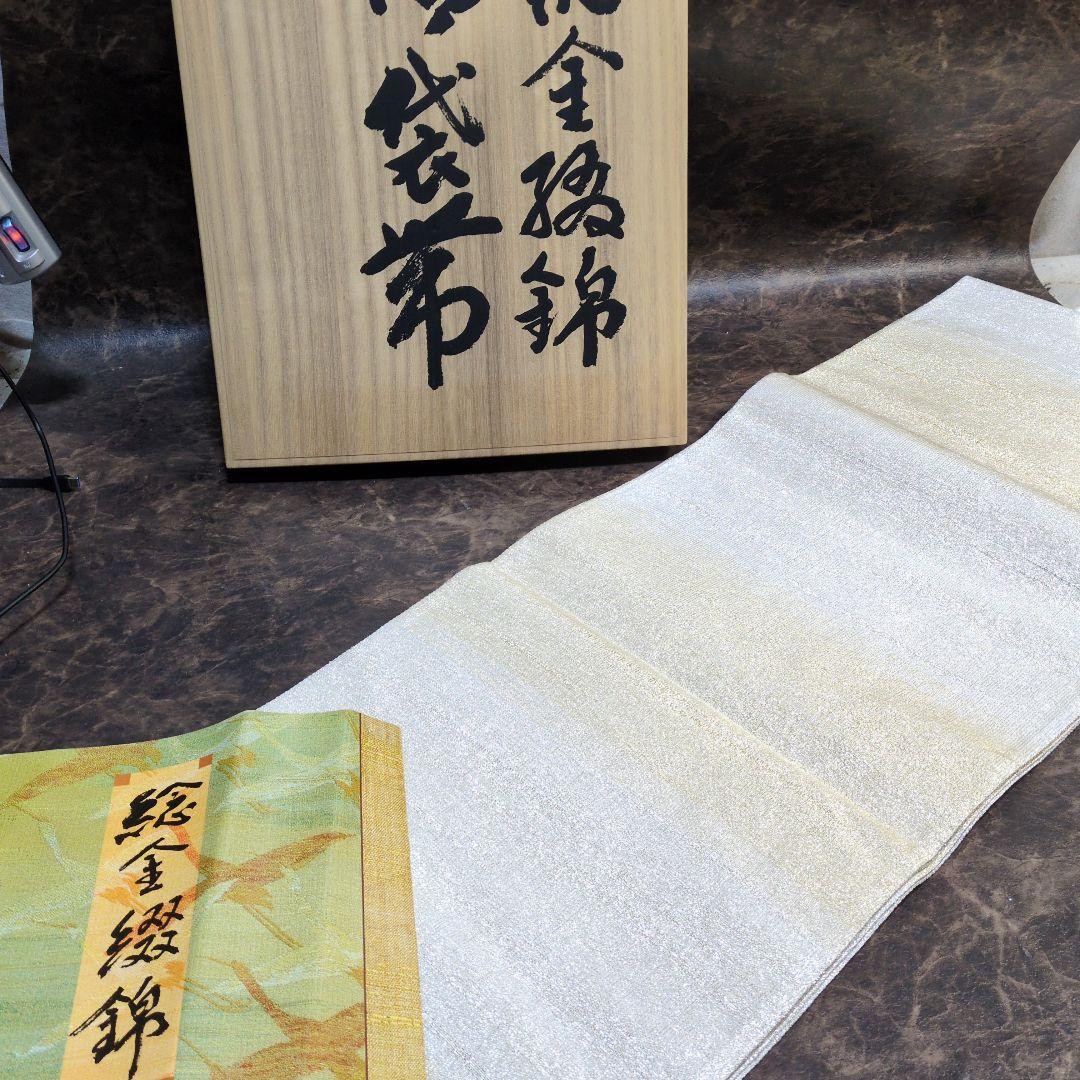 金綴錦
袋帯
総金綴錦